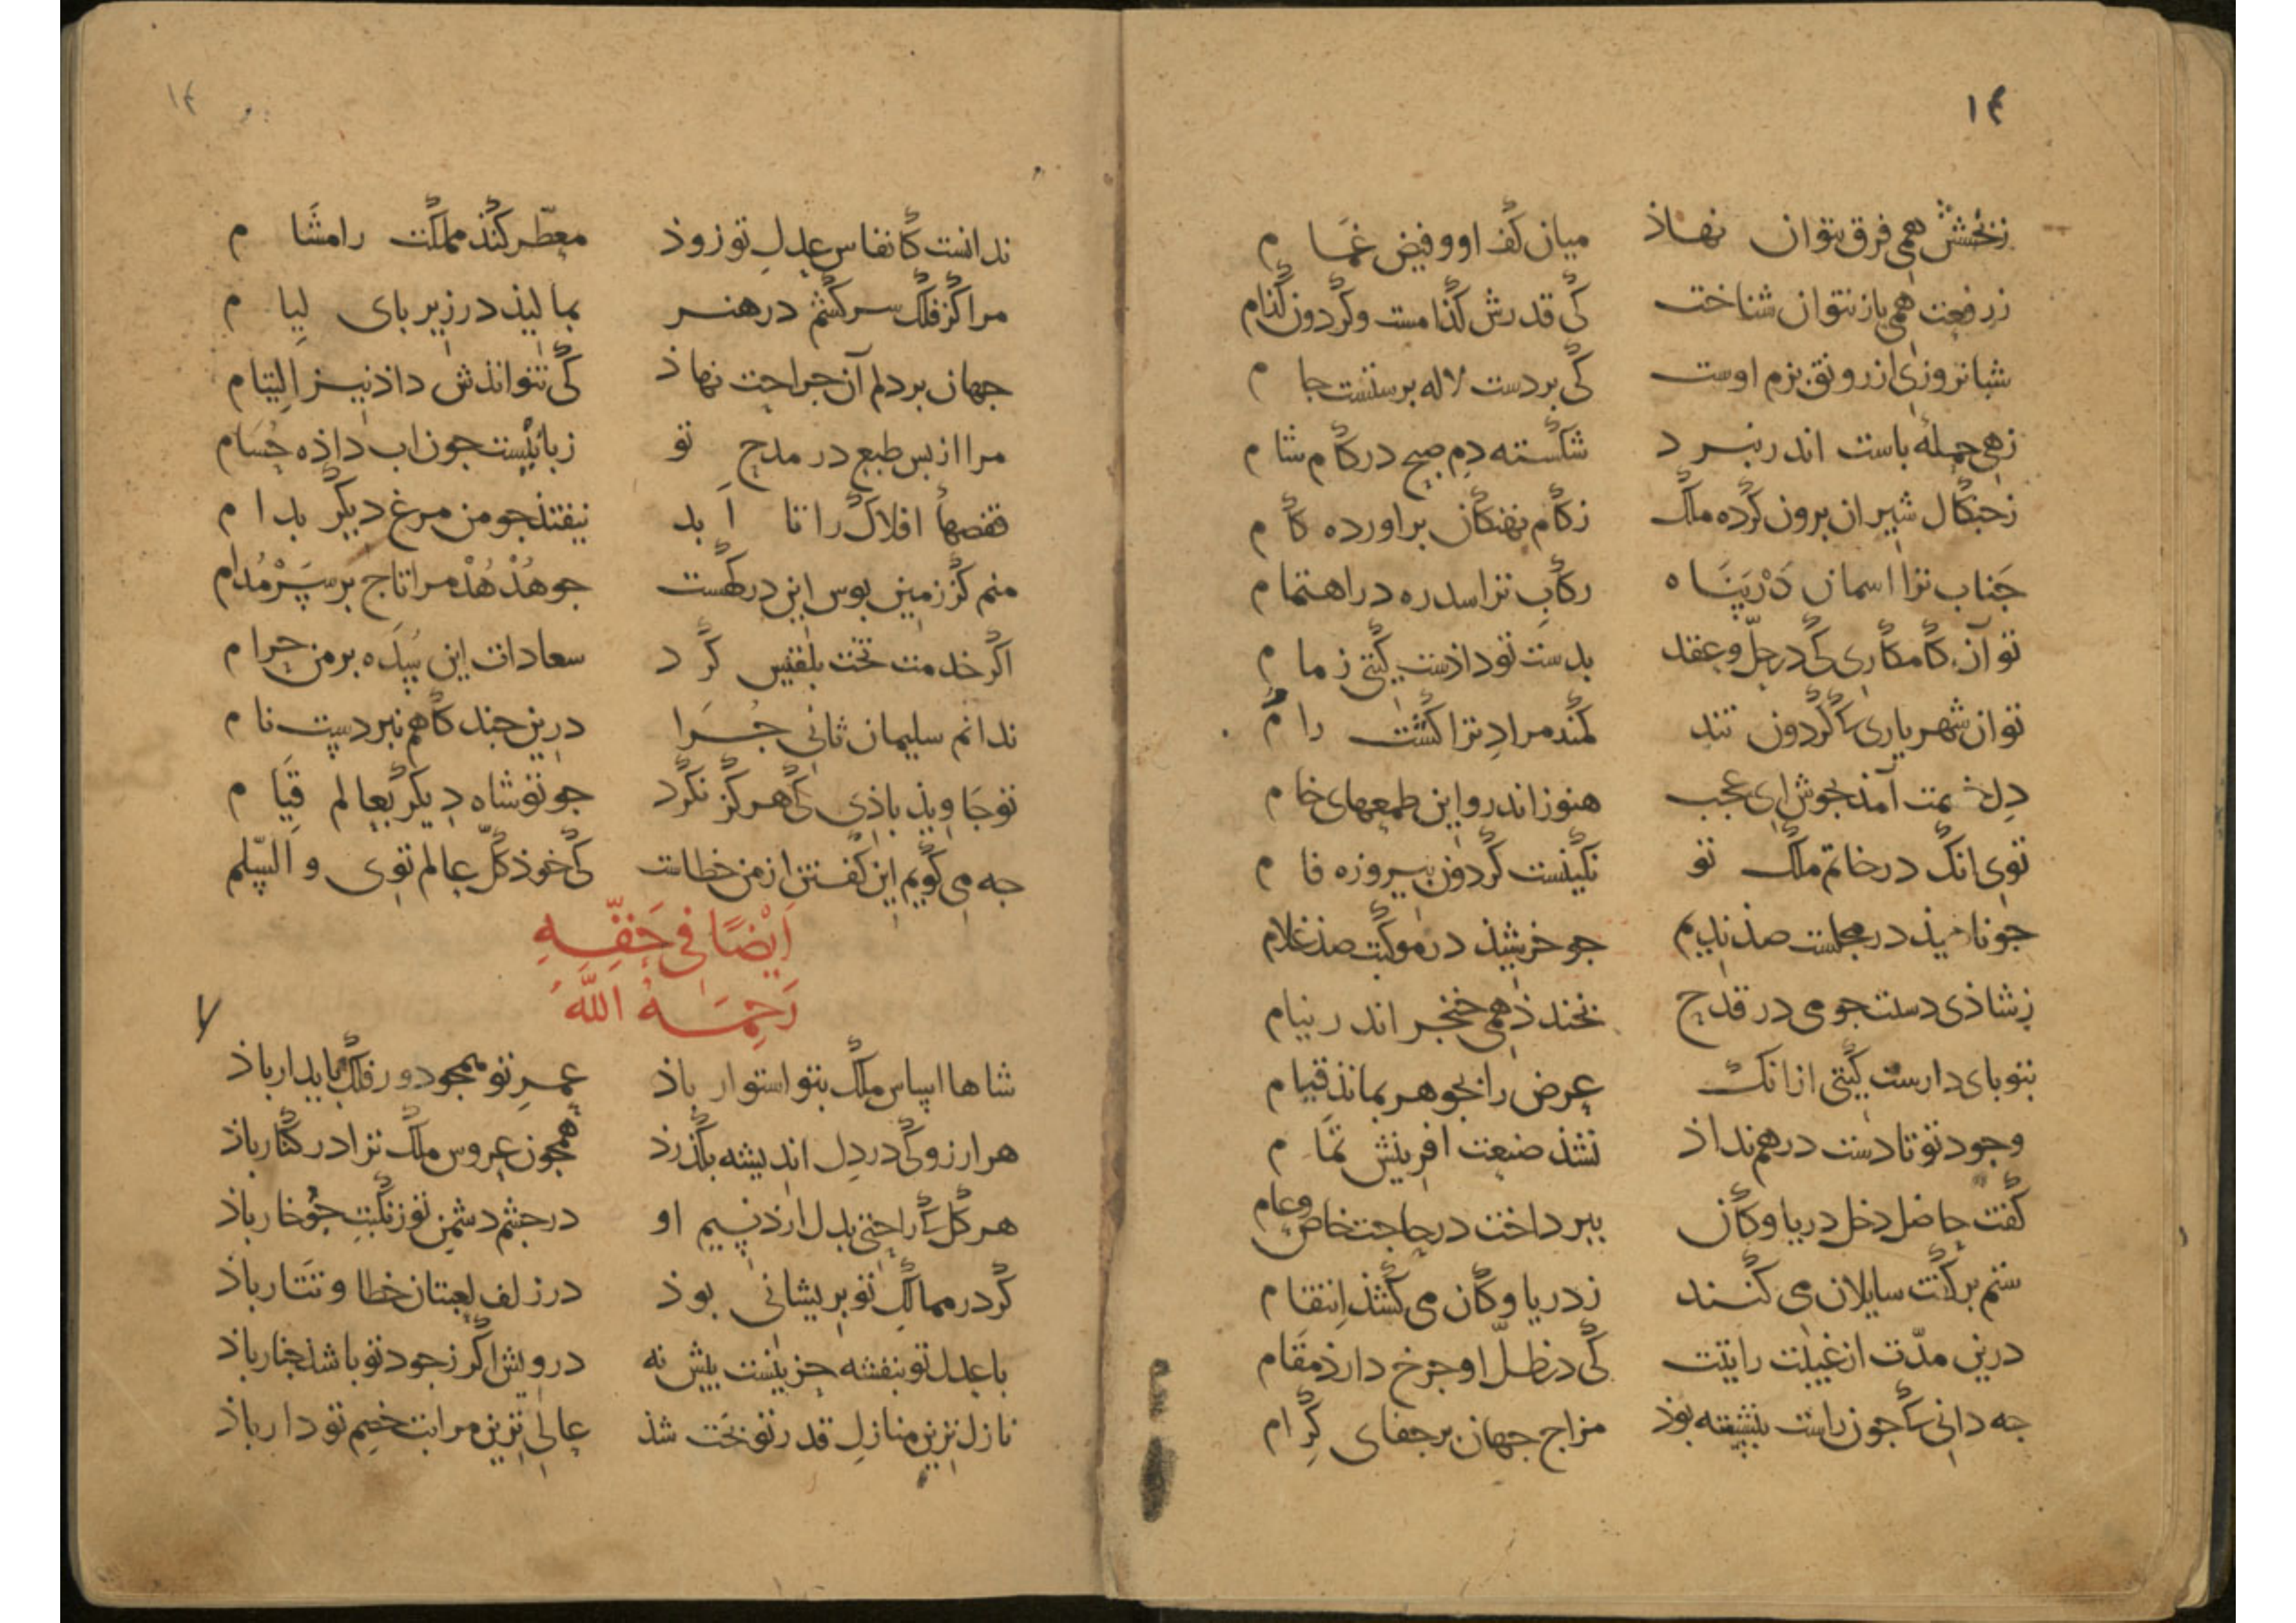 ١٣
زبخشش همی فرق نتوان نهاذ میان کف او و فیض غمام
ز رفعت همی باز نتوان شناخت کی قدرش کذامست و کردون کذام
شبانروزی از رونق بزم اوست کی بر دست لاله برستست جام
زهی حملهٔ باست اندر نبرد شکسته دم صبح در کام شام
ز جنکال شیران برون کرده ملک ز کام نهنکان براورده کام
جناب ترا اسمان در پناه رکاب ترا سدره در اهتمام
تو آن کامکاری کی در حل و عقد بدست تو داذست کیتی زمام
توان شهریاری کا کردون تند کمند مراد ترا کشت رام
دل خصمت آمد بجوش ای عجب هنوز اندرو این طمعهای خام
توی انک در خاتم ملک تو نکینست کردون پیروزه فام
جو ناهیذ در مجلست صذ ندیم جو خرشیذ در موکبت صذ غلام
ز شاذی دستت جو می در قدح بخندذ همی خنجر اندر نیام
بتو بای دارست کیتی ازانک عرض را بجوهر بمانذ قیام
وجود تو تا دست در هم نداذ نشذ صنعت افرینش تمام
کفت حاصل دخل دریا و کان ببرداخت در حاجت خاص و عام
ستم بر کفت سایلان می کنند ز دریا و کان می کشذ انتقام
درین مدت از غیبت رایتت کی در ظل او جرخ دارذ مقام
جه دانی کا جون راست بنشسته بوذ مزاج جهان بر جفای کرام
١٤
ندانست کانفاس عدل تو زوذ معطر کنذ مملکت را مشام
مرا کز فلک سر کشم در هنر بمالیذ در زیر بای لیام
جهان بر دلم آن جراحت نهاذ کی نتوانذش داذ نیز التیام
مرا از بس طبع در مدح تو زبانیست جون اب داذه حسام
قفصهأ افلاک را تا ابد نیفتذ جو من مرغ دیکر بدام
منم کز زمین بوس این درکهست جو هذهذ مرا تاج بر سر مدام
اکر خدمت تخت بلقیس کرد سعادات این سده بر من حرام
ندانم سلیمان ثانی جرا درین جند کاهم نبردست نام
تو جاویذ باذی کی هرکز نکرد جو تو شاه دیکر بعالم قیام
جه می کویم این کفتن از من خطاست کی خوذ کل عالم توی والسلم
أیضًا فی حقه
رحمه الله
شاها اساس ملک بتو استوار باذ عمر تو همجو دور فلک بایدار باذ
هر ارزو کی در دل اندیشه بکذرذ همجون عروس ملک ترا در کنار باذ
هر کل کا راحتی بدل ارذ نسیم او در جشم دشمن تو ز نکبت جو خار باذ
کر در ممالک تو بریشانی بوذ در زلف لعبتان خطا و تتار باذ
با عدل تو بنفشه جز نیست بیش نه درویش اکر ز جود تو باشذ جنار باذ
نازل ترین منازل قدر تو تخت شذ عالی ترین مراتب خصم تو دار باذ